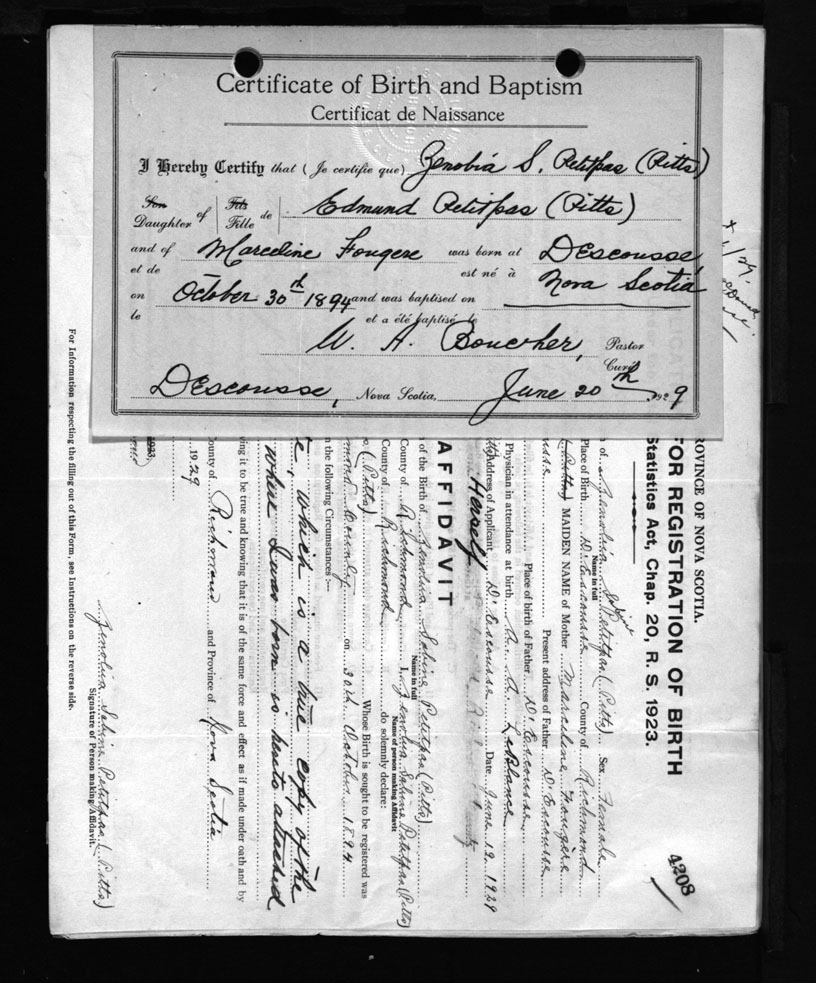 Certificate of Birth and Baptism
Certificat de Naissance
I Hereby Certify that (Je certifie que) Zenobia S. Petitpas (Pitts)
Son Daughter of Fils Fille de Edmund Petitpas (Pitts)
and of et de Marceline Fougere was born at est né à Descousse
Nova Scotia
on le October 30th 1894 and was baptised on et a été baptisé le
W. A. Boucher, Pastor Curé
Descousse, Nova Scotia, June 20th 1929
PROVINCE OF NOVA SCOTIA.
FOR REGISTRATION OF BIRTH
Statistics Act, Chap. 20, R. S. 1923.
4208
of Zenobia Sabine Petitpas (Pitts) Sex Female
Name in full
Place of Birth D'Escousse County of Richmond
(Pitts) MAIDEN NAME of Mother Marceline Fougere
Present address of Father D'Escousse
Place of birth of Father D'Escousse
Physician in attendance at birth A. A. LeBlanc
Address of Applicant D'Escousse Date June 12, 1929
Herself
AFFIDAVIT
of the Birth of Zenobia Sabine Petitpas (Pitts)
Name in full
County of Richmond I, Zenobia Sabine Petitpas (Pitts)
Name of person making Affidavit
County of Richmond do solemnly declare:
(Pitts) Whose Birth is sought to be registered was
County on 30th October 1894
in the following Circumstances:—
which is a true copy of the
where I was born is hereto attached
ving it to be true and knowing that it is of the same force and effect as if made under oath and by
County of Richmond and Province of Nova Scotia
1929
Zenobia Sabine Petitpas (Pitts)
Signature of Person making Affidavit.
For Information respecting the filling out of this Form, see Instructions on the reverse side.